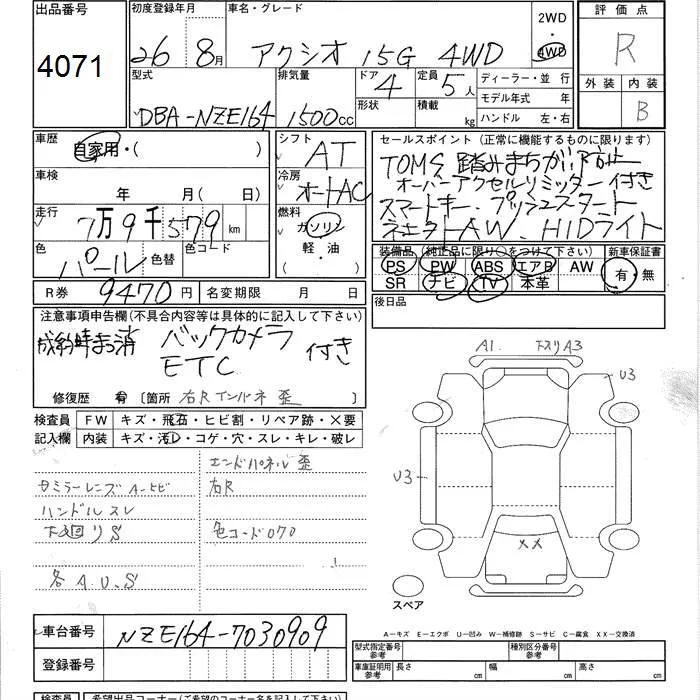 出品番号 初度登録年月 車名・グレード 2WD・4WD 評価点
4071 26 8月 アクシオ 15G 4WD R
型式 排気量 ドア 4 定員 5人 ディーラー・並行 外装 内装
DBA-NZE164 1500cc 形状 積載 kg モデル年式 年 B
ハンドル 左・右
車歴 自家用・( ) シフト AT セールスポイント (正常に機能するものに限ります)
車検 年 月(日) 冷房 オートAC TOM'S 踏みまちがい防止
オーバーアクセルリミッター付き
走行 7万9千579km 燃料 ガソリン スマートキー、プッシュスタート
軽・油 AW、HIDライト
色 パール 色替 色コード 装備品 (純正品に限り○をつけて下さい) 新車保証書
PS PW ABS エアB AW 有・無
R券 9470円 名変期限 月 日 SR ナビ TV 本革
後日品
注意事項申告欄(不具合内容等は具体的に記入して下さい)
バックカメラ
ETC 付き
修復歴 有 [箇所 右Rインパネ 歪
A1. 下スリA3
U3
U3
XX
スペア
検査員 FW キズ・飛石・ヒビ割・リペア跡・X要
記入欄 内装 キズ・汚レ・コゲ・穴・スレ・キレ・破レ
エンドパネル 歪
ミラーレンズ ヒビ 右R
ハンドルスレ
下廻りS 色コード070
各A.U.S
車台番号 NZE164-7030909
A−キズ E−エクボ U−凹み W−補修跡 S−サビ C−腐食 XX−交換済
登録番号 型式指定番号 参考 種別区分番号 参考
車庫証明用 参考 長さ cm 幅 cm 高さ cm
検査員 希望出品コーナー(ご希望のコーナー名を記入して下さい)